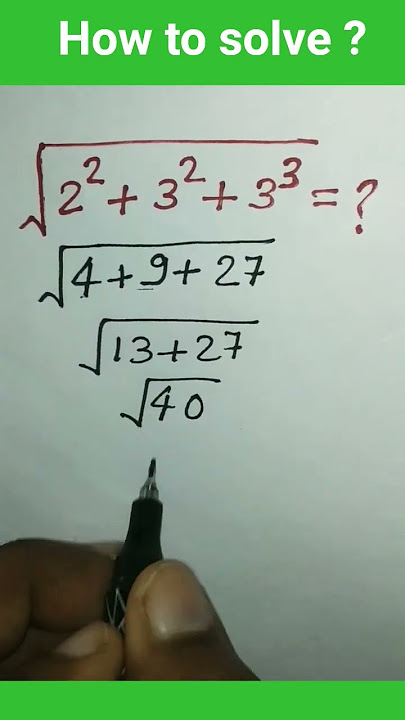 How to solve ?
√2² + 3² + 3³ = ?
√4 + 9 + 27
√13 + 27
√40